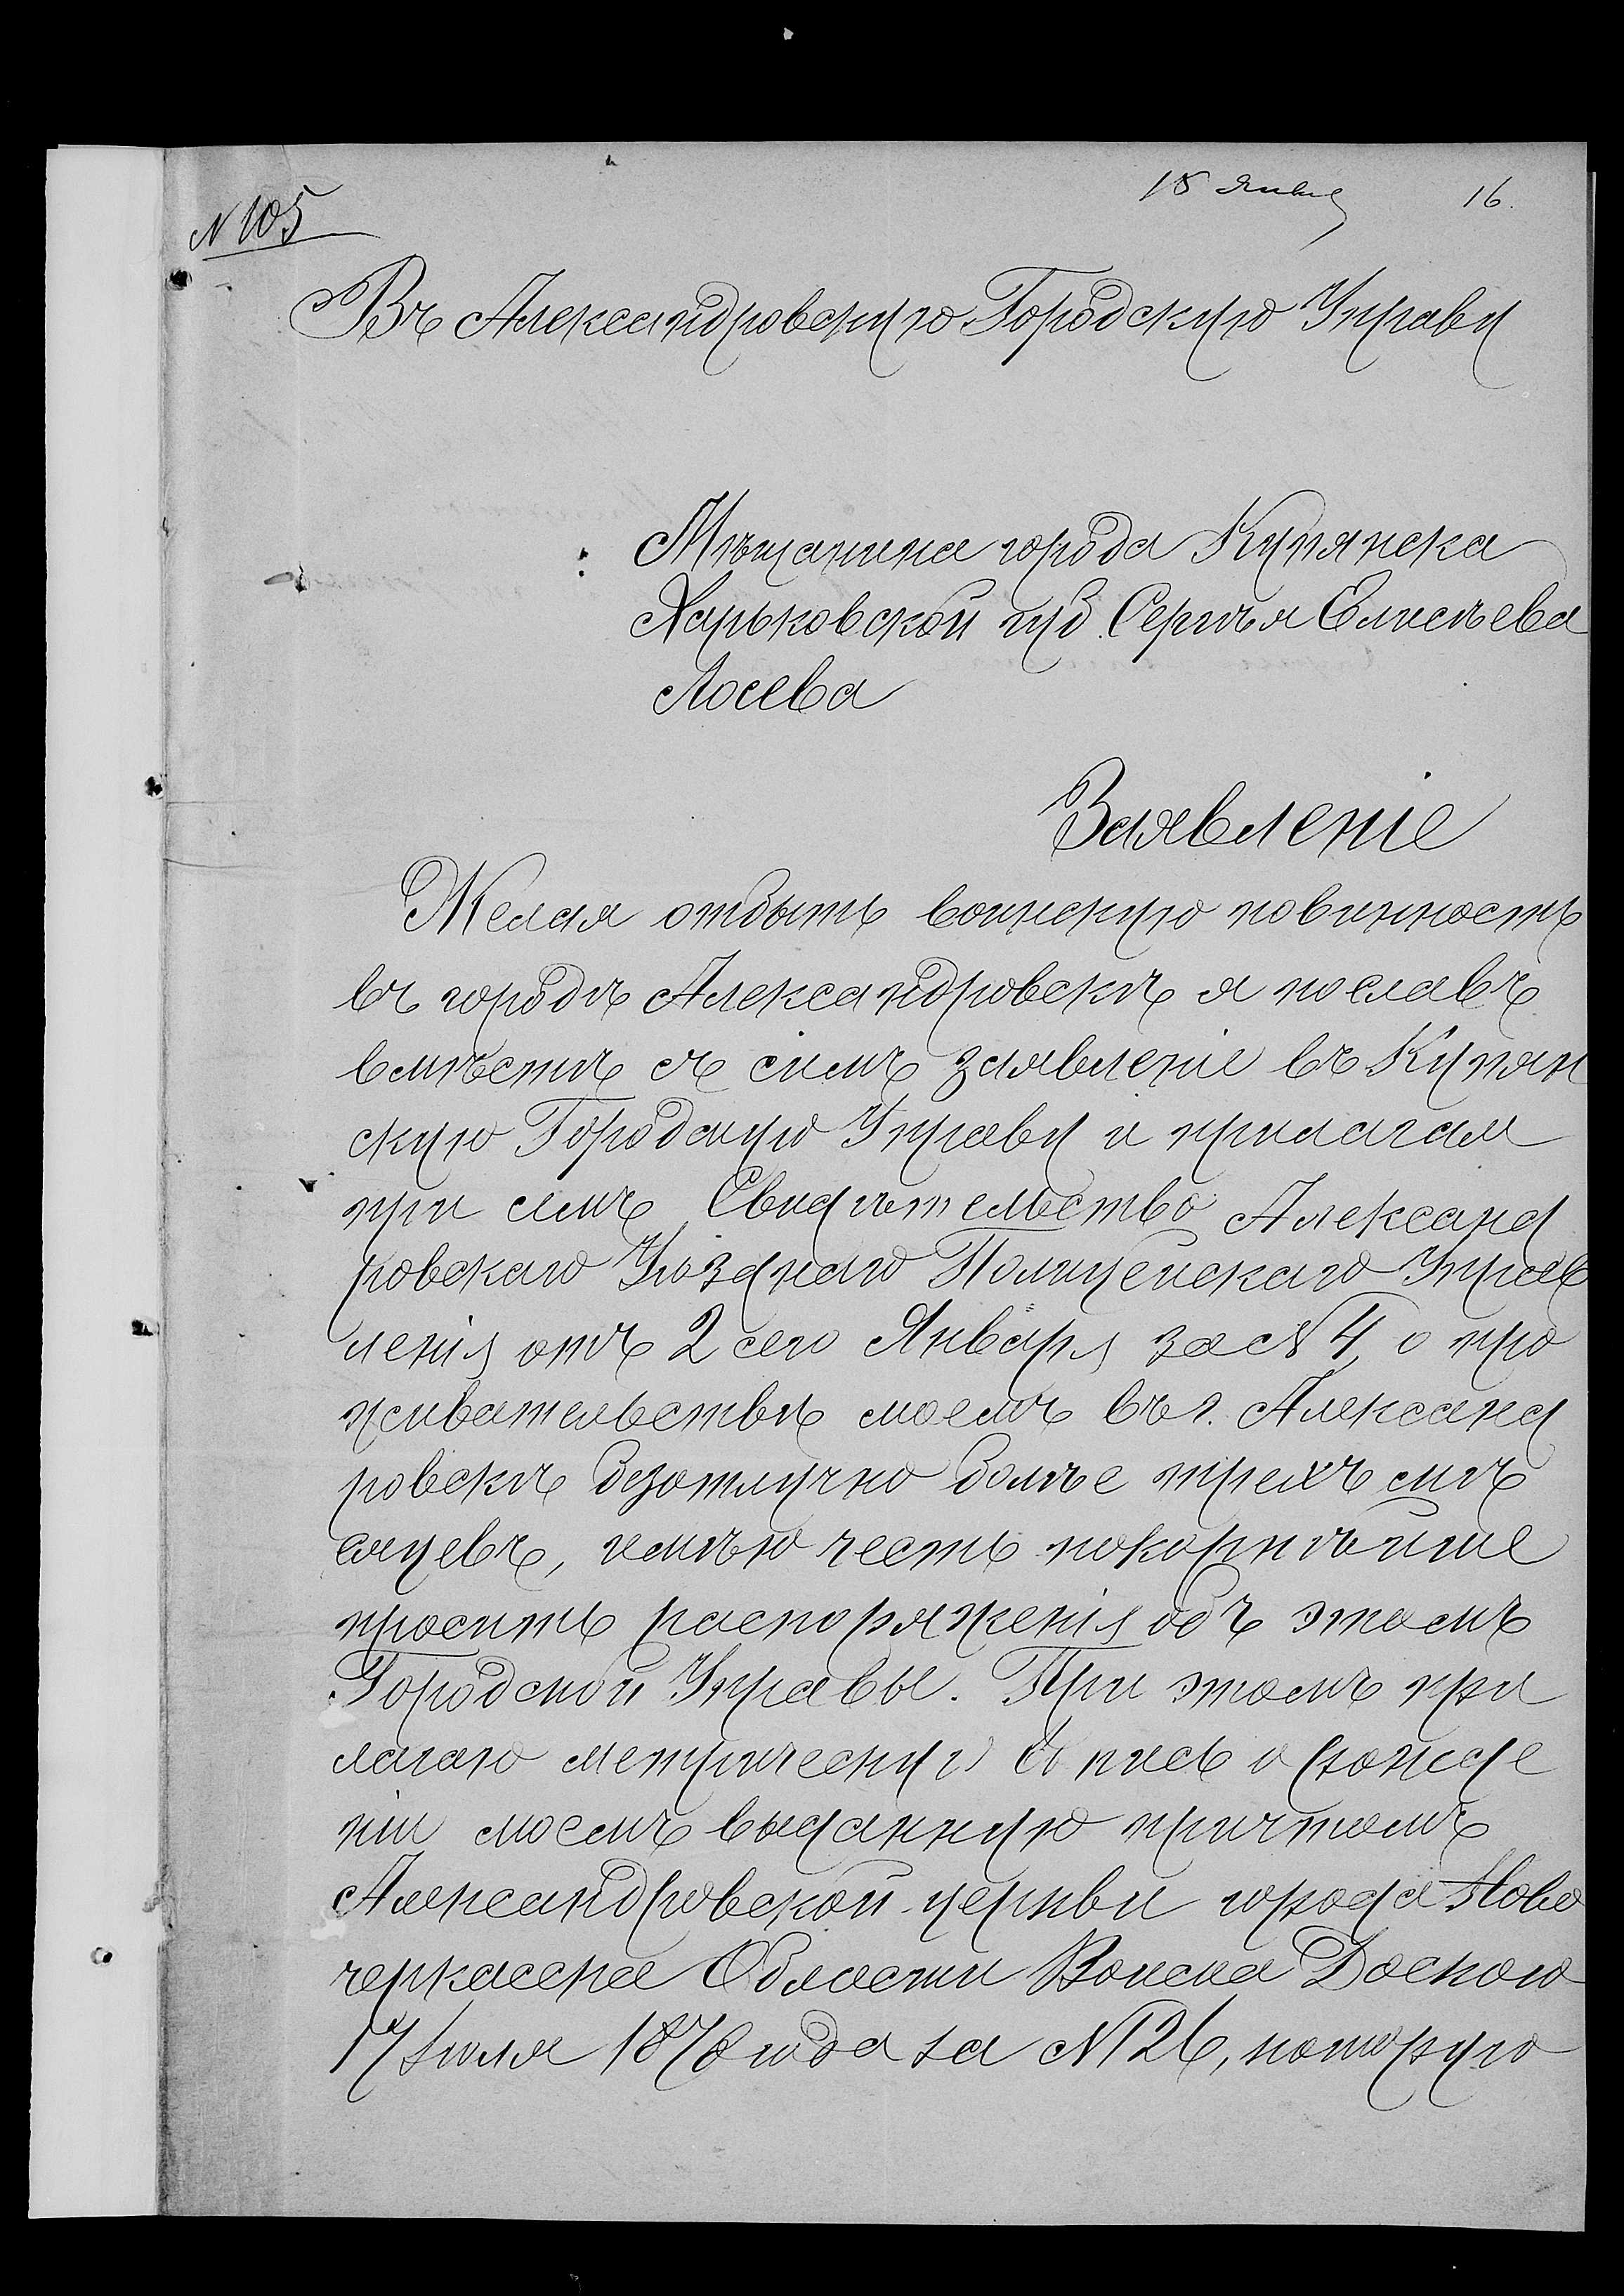 N 105
15 Янв
16.
Въ Александровскую Городскую Управу
Мѣщанина города Купянска
Харьковской губ. Сергѣя Елисѣева
Лосева
Заявленіе
Желая отбыть воинскую повинность
въ городѣ Александровскѣ я пославъ
вмѣстѣ съ симъ заявленіе въ Купян
скую Городскую Управу и прилагая
при семъ Свидѣтельство Александ
ровскаго Уѣзднаго Полицейскаго Управ
ленія отъ 2 сего Января за № 4, о про
живательствѣ моемъ въ г. Александ
ровскѣ безотлучно болѣе трехъ мѣ
сяцевъ, имѣю честь покорнѣйше
просить распоряженія объ этомъ
Городской Управы. При этомъ при
лагаю метрическую выпись о рожде
ніи моемъ выданную причтомъ
Александровской церкви города Ново
черкасска Области Войска Донского
17 Іюля 1878 года за № 126, которую